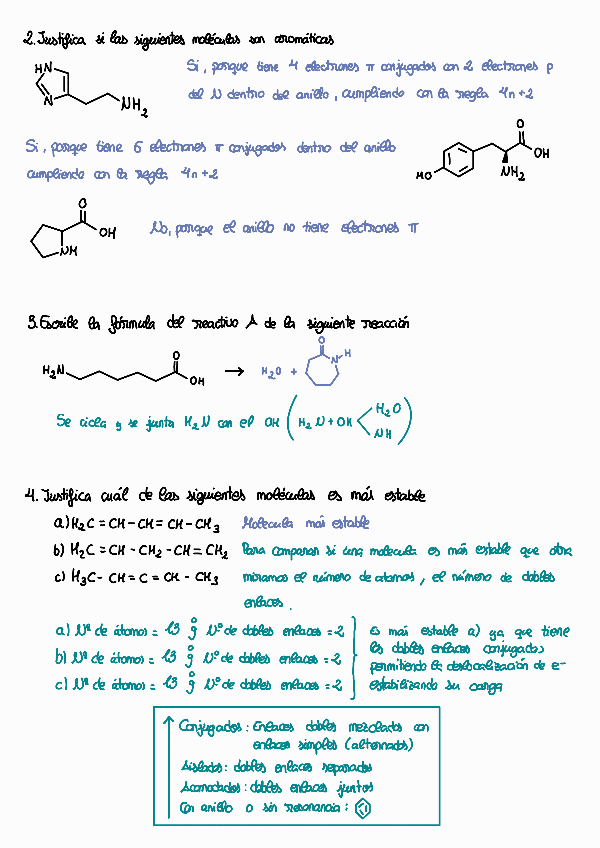 2. Justifica si las siguientes moléculas son aromáticas
HN
N
NH2
Si, porque tiene 4 electrones π conjugados con 2 electrones p
del N dentro del anillo, cumpliendo con la regla 4n+2
Si, porque tiene 6 electrones π conjugados dentro del anillo
cumpliendo con la regla 4n+2
O
OH
NH2
HO
O
OH
NH
No, porque el anillo no tiene electrones π
3. Escribe la fórmula del reactivo A de la siguiente reacción
H2N
O
OH
→ H2O +
O
N
H
Se cicla y se junta H2N con el OH (H2N + OH < H2O
NH)
4. Justifica cuál de las siguientes moléculas es más estable
a) H2C = CH - CH = CH - CH3 Molecula más estable
b) H2C = CH - CH2 - CH = CH2 Para comparar si una molecula es más estable que otra
c) H3C - CH = C = CH - CH3 miramos el número de atomos, el número de dobles
enlaces.
a) Nº de átomos = 13 y Nº de dobles enlaces = 2
b) Nº de átomos = 13 y Nº de dobles enlaces = 2
c) Nº de átomos = 13 y Nº de dobles enlaces = 2
Es más estable a) ya que tiene
los dobles enlaces conjugados
permitiendo la deslocalización de e-
estabilizando su carga
Conjugados: Enlaces dobles mezclados con
enlaces simples (alternados)
Aislados: dobles enlaces separados
Acomodados: dobles enlaces juntos
Con anillo o sin resonancia: